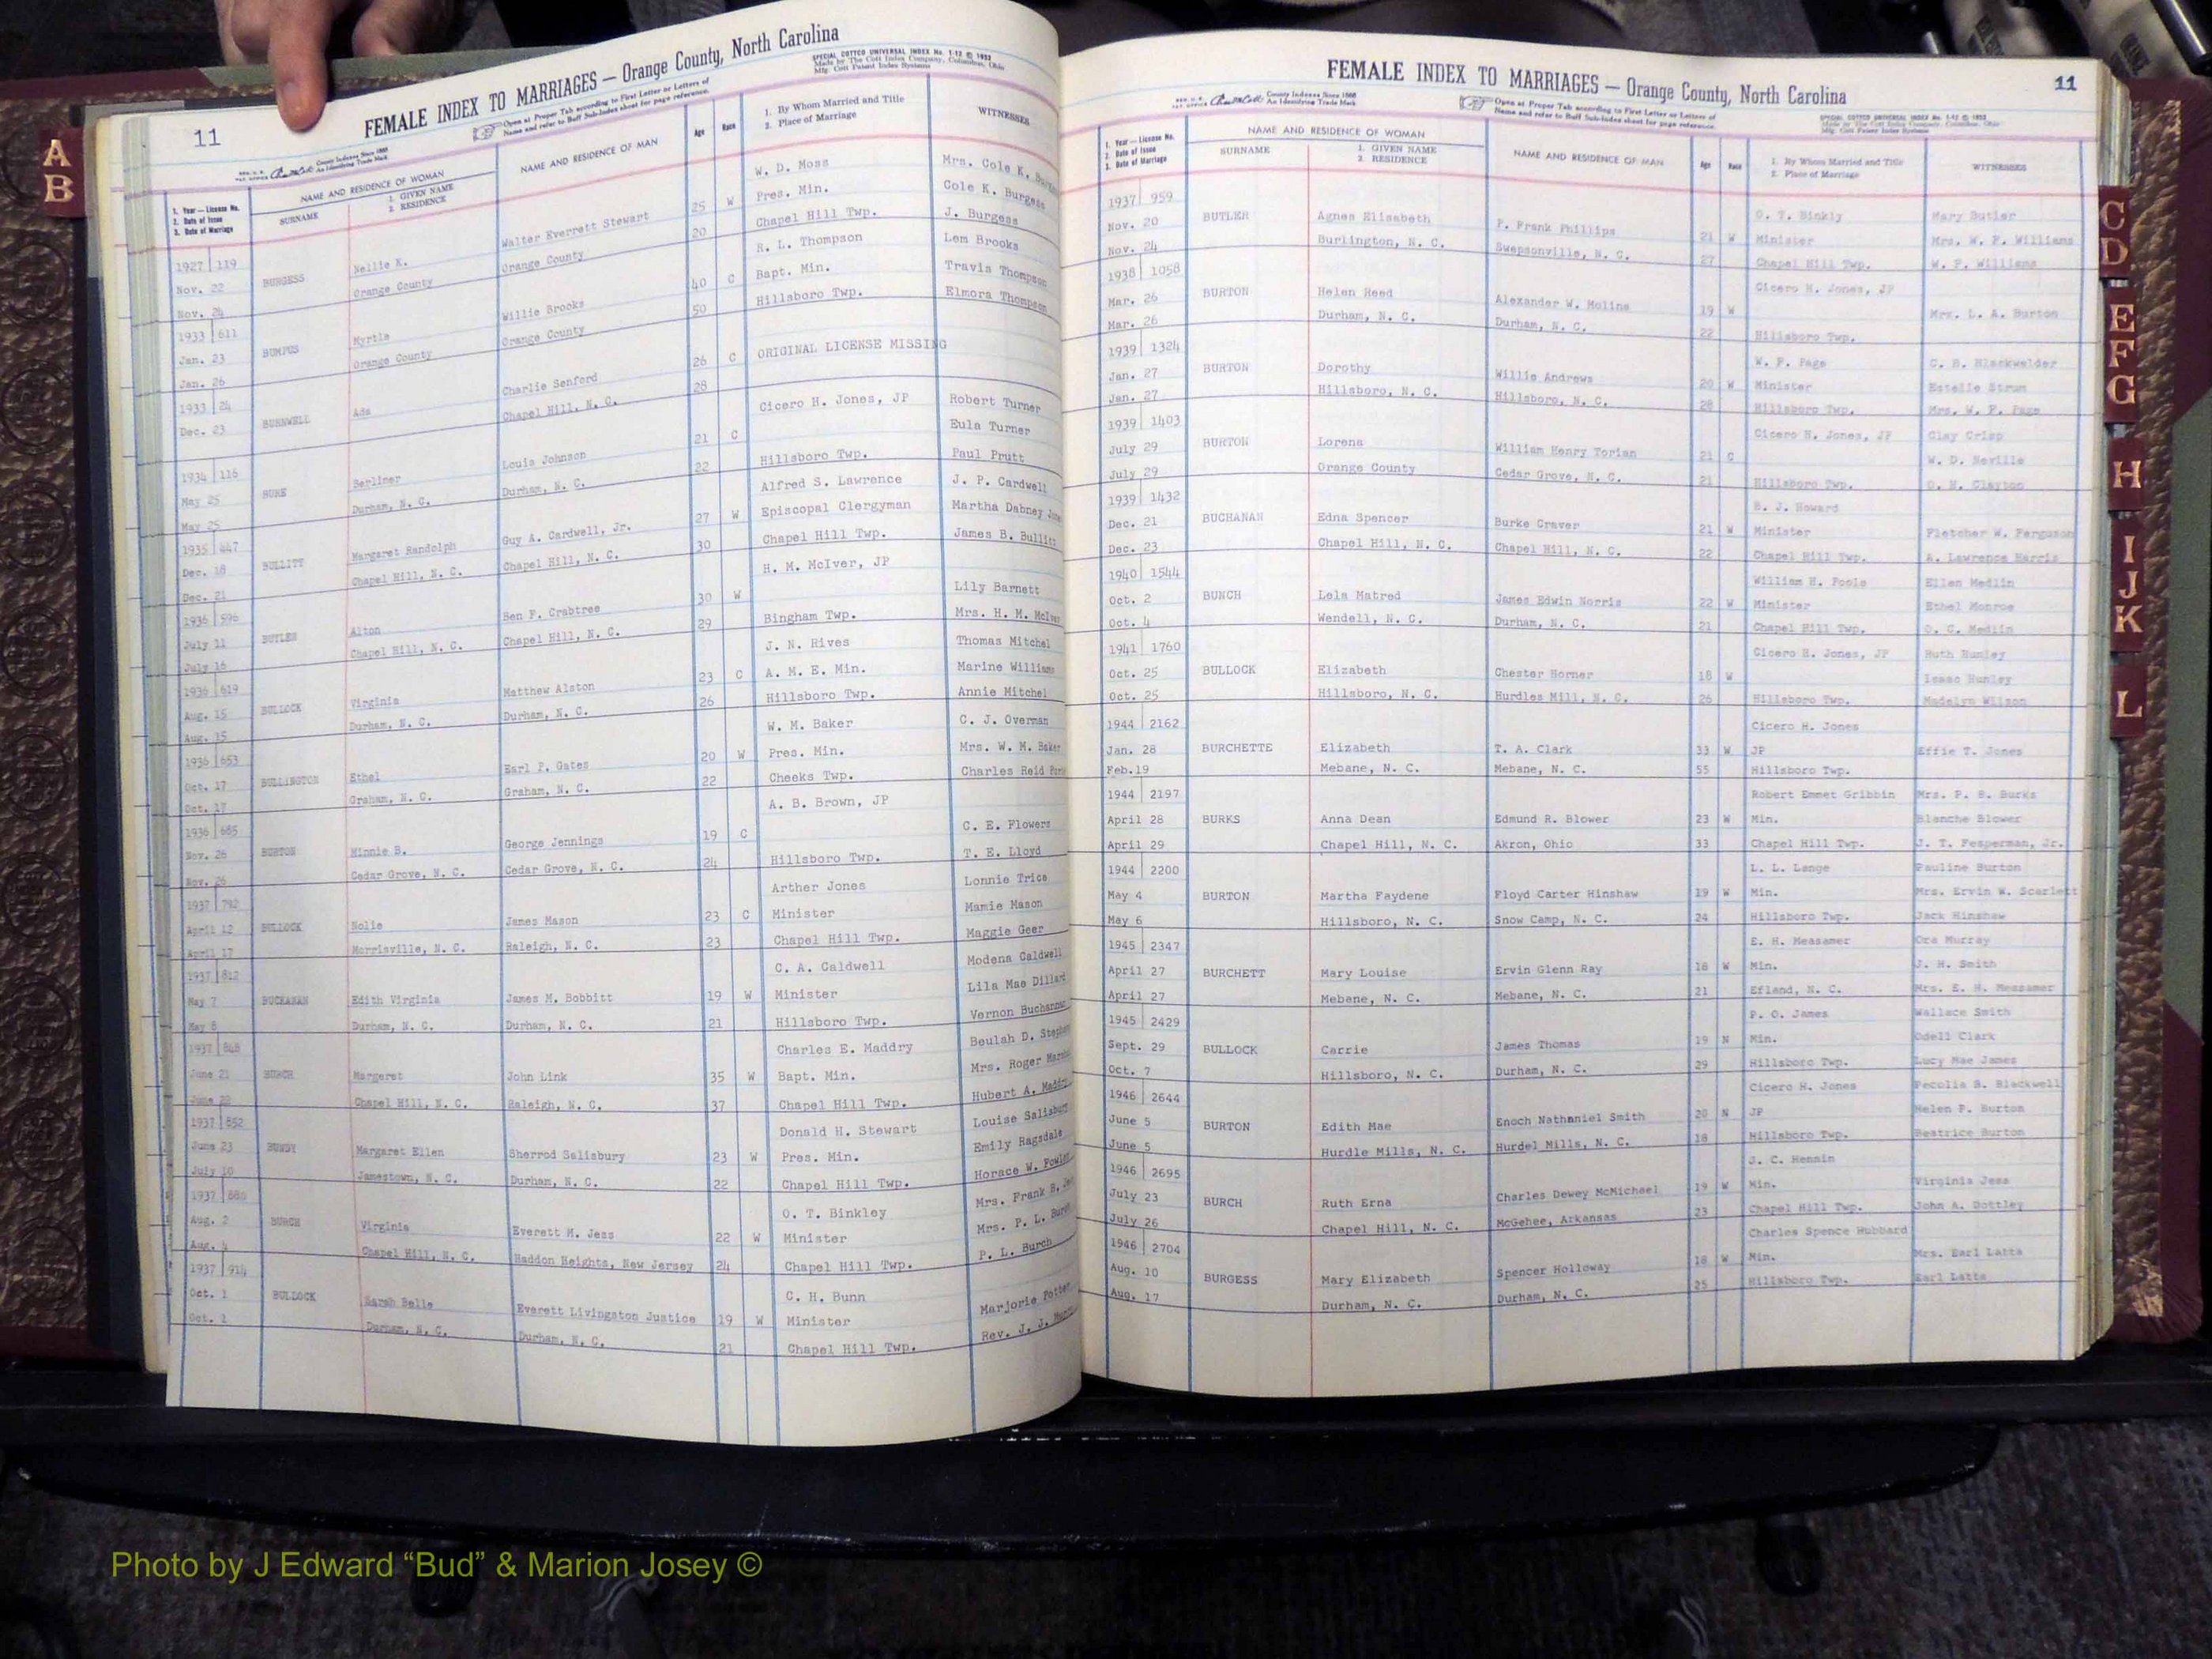 11
FEMALE INDEX TO MARRIAGES — Orange County, North Carolina
SPECIAL COTTCO UNIVERSAL INDEX No. 1-12 © 1953
Made by The Cott Index Company, Columbus, Ohio
Mfg. Cott Patent Index Systems
County Indexes Since 1888
An Identifying Trade Mark
Open at Proper Tab according to First Letter or Letters of
Name and refer to Buff Sub-Index sheet for page reference.
1. Year — License No.
2. Date of Issue
3. Date of Marriage
NAME AND RESIDENCE OF WOMAN
SURNAME
1. GIVEN NAME
2. RESIDENCE
NAME AND RESIDENCE OF MAN
Age
Race
1. By Whom Married and Title
2. Place of Marriage
WITNESSES
1927 119 Walter Everrett Stewart 25 W W. D. Moss Mrs. Cole K.
Nov. 22 BURGESS Nellie K. Pres. Min. Cole K. Burgess
Nov. 24 Orange County Orange County 20 Chapel Hill Twp. J. Burgess
1933 611 R. L. Thompson Lem Brooks
Jan. 23 BUMPUS Myrtle Willie Brooks 40 C Bapt. Min. Travis Thompson
Jan. 26 Orange County Orange County 50 Hillsboro Twp. Elmora Thompson
1933 24 ORIGINAL LICENSE MISSING
Dec. 23 BURNWELL Ada Charlie Senford 26 C
Chapel Hill, N. C. 28
1934 116 Cicero H. Jones, JP Robert Turner
May 25 BURE Berliner Louis Johnson 21 C Eula Turner
May 25 Durham, N. C. Durham, N. C. 22 Hillsboro Twp. Paul Prutt
1935 447 Alfred S. Lawrence J. P. Cardwell
Dec. 18 BULLITT Margaret Randolph Guy A. Cardwell, Jr. 27 W Episcopal Clergyman Martha Dabney
Dec. 21 Chapel Hill, N. C. Chapel Hill, N. C. 30 Chapel Hill Twp. James B. Bullitt
1936 596 H. M. McIver, JP
July 11 BUTLER Alton Ben F. Crabtree 30 W Lily Barnett
July 16 Chapel Hill, N. C. Chapel Hill, N. C. 29 Bingham Twp. Mrs. H. M. McIver
1936 619 J. N. Rives Thomas Mitchel
Aug. 15 BULLOCK Virginia Matthew Alston 23 C A. M. E. Min. Marine Williams
Aug. 15 Durham, N. C. Durham, N. C. 26 Hillsboro Twp. Annie Mitchel
1936 653 W. M. Baker C. J. Overman
Oct. 17 BULLINGTON Ethel Earl P. Gates 20 W Pres. Min. Mrs. W. M. Baker
Oct. 17 Graham, N. C. Graham, N. C. 22 Cheeks Twp. Charles Reid
1936 685 A. B. Brown, JP
Nov. 26 BURTON Minnie B. George Jennings 19 C C. E. Flowers
Nov. 26 Cedar Grove, N. C. Cedar Grove, N. C. 24 Hillsboro Twp. T. E. Lloyd
1937 792 Arther Jones Lonnie Trice
April 12 BULLOCK Nolie James Mason 23 C Minister Mamie Mason
April 17 Morrisville, N. C. Raleigh, N. C. 23 Chapel Hill Twp. Maggie Geer
1937 812 C. A. Caldwell Modena Caldwell
May 7 BUCHANAN Edith Virginia James M. Bobbitt 19 W Minister Lila Mae Dillard
May 8 Durham, N. C. Durham, N. C. 21 Hillsboro Twp. Vernon Buchannan
1937 848 Charles E. Maddry Beulah D.
June 21 BURCH Margaret John Link 35 W Bapt. Min. Mrs. Roger
June 22 Chapel Hill, N. C. Raleigh, N. C. 37 Chapel Hill Twp. Hubert A. Maddry
1937 852 Donald H. Stewart Louise Salisbury
June 23 BUNDY Margaret Ellen Sherrod Salisbury 23 W Pres. Min. Emily Ragsdale
July 10 Jamestown, N. C. Durham, N. C. 22 Chapel Hill Twp. Horace W. Fowler
1937 880 O. T. Binkley Mrs. Frank B.
Aug. 2 BURCH Virginia Everett M. Jess 22 W Minister Mrs. P. L. Burch
Aug. 4 Chapel Hill, N. C. Haddon Heights, New Jersey 24 Chapel Hill Twp. P. L. Burch
1937 914 C. H. Bunn
Oct. 1 BULLOCK Sarah Belle Everett Livingston Justice 19 W Minister Marjorie Potter
Oct. 1 Durham, N. C. Durham, N. C. 21 Chapel Hill Twp. Rev. J. J.
11
FEMALE INDEX TO MARRIAGES — Orange County, North Carolina
County Indexes Since 1888
An Identifying Trade Mark
Open at Proper Tab according to First Letter or Letters of
Name and refer to Buff Sub-Index sheet for page reference.
SPECIAL COTTCO UNIVERSAL INDEX No. 1-12 © 1953
1. Year — License No.
2. Date of Issue
3. Date of Marriage
NAME AND RESIDENCE OF WOMAN
SURNAME
1. GIVEN NAME
2. RESIDENCE
NAME AND RESIDENCE OF MAN
Age
Race
1. By Whom Married and Title
2. Place of Marriage
WITNESSES
1937 959 O. T. Binkly Mary Butler
Nov. 20 BUTLER Agnes Elizabeth P. Frank Phillips 21 W Minister Mrs. W. P. Williams
Nov. 24 Burlington, N. C. Swepsonville, N. C. 27 Chapel Hill Twp. W. P. Williams
1938 1058 Cicero H. Jones, JP
Mar. 26 BURTON Helen Reed Alexander W. Molins 19 W Mrs. L. A. Burton
Mar. 26 Durham, N. C. Durham, N. C. 22 Hillsboro Twp.
1939 1324 W. F. Page C. B. Blackwelder
Jan. 27 BURTON Dorothy Willis Andrews 20 W Minister Estelle Strum
Jan. 27 Hillsboro, N. C. Hillsboro, N. C. 28 Hillsboro Twp. Mrs. W. F. Page
1939 1403 Cicero H. Jones, JP Clay Crisp
July 29 BURTON Lorena William Henry Torian 21 C W. D. Neville
July 29 Orange County Cedar Grove, N. C. 21 Hillsboro Twp. O. N. Clayton
1939 1432 B. J. Howard
Dec. 21 BUCHANAN Edna Spencer Burke Craver 21 W Minister Fletcher W. Ferguson
Dec. 23 Chapel Hill, N. C. Chapel Hill, N. C. 22 Chapel Hill Twp. A. Lawrence Harris
1940 1544 William H. Poole Ellen Medlin
Oct. 2 BUNCH Lela Matred James Edwin Norris 22 W Minister Ethel Monroe
Oct. 4 Wendell, N. C. Durham, N. C. 21 Chapel Hill Twp. O. C. Medlin
1941 1760 Cicero H. Jones, JP Ruth Hunley
Oct. 25 BULLOCK Elizabeth Chester Horner 18 W Isaac Hunley
Oct. 25 Hillsboro, N. C. Hurdles Mill, N. C. 26 Hillsboro Twp. Madelyn Wilson
1944 2162 Cicero H. Jones
Jan. 28 BURCHETTE Elizabeth T. A. Clark 33 W JP Effie T. Jones
Feb.19 Mebane, N. C. Mebane, N. C. 55 Hillsboro Twp.
1944 2197 Robert Emmet Gribbin Mrs. P. B. Burks
April 28 BURKS Anna Dean Edmund R. Blower 23 W Min. Blanche Blower
April 29 Chapel Hill, N. C. Akron, Ohio 33 Chapel Hill Twp. J. T. Fesperman, Jr.
1944 2200 L. L. Lange Pauline Burton
May 4 BURTON Martha Faydene Floyd Carter Hinshaw 19 W Min. Mrs. Ervin W. Scarlett
May 6 Hillsboro, N. C. Snow Camp, N. C. 24 Hillsboro Twp. Jack Hinshaw
1945 2347 E. H. Measamer Ora Murray
April 27 BURCHETT Mary Louise Ervin Glenn Ray 18 W Min. J. H. Smith
April 27 Mebane, N. C. Mebane, N. C. 21 Efland, N. C. Mrs. E. H. Messamer
1945 2429 P. O. James Wallace Smith
Sept. 29 BULLOCK Carrie James Thomas 19 N Min. Odell Clark
Oct. 7 Hillsboro, N. C. Durham, N. C. 29 Hillsboro Twp. Lucy Mae James
1946 2644 Cicero H. Jones Pecolia S. Blackwell
June 5 BURTON Edith Mae Enoch Nathaniel Smith 20 N JP Helen P. Burton
June 5 Hurdle Mills, N. C. Hurdel Mills, N. C. 18 Hillsboro Twp. Beatrice Burton
1946 2695 J. C. Hennin
July 23 BURCH Ruth Erna Charles Dewey McMichael 19 W Min. Virginia Jess
July 26 Chapel Hill, N. C. McGehee, Arkansas 23 Chapel Hill Twp. John A. Dottley
1946 2704 Charles Spence Hubbard
Aug. 10 BURGESS Mary Elizabeth Spencer Holloway 18 W Min. Mrs. Earl Latta
Aug. 17 Durham, N. C. Durham, N. C. 25 Hillsboro Twp. Earl Latta
A
B
C
D
E
F
G
H
I
J
K
L
Photo by J Edward “Bud” & Marion Josey ©